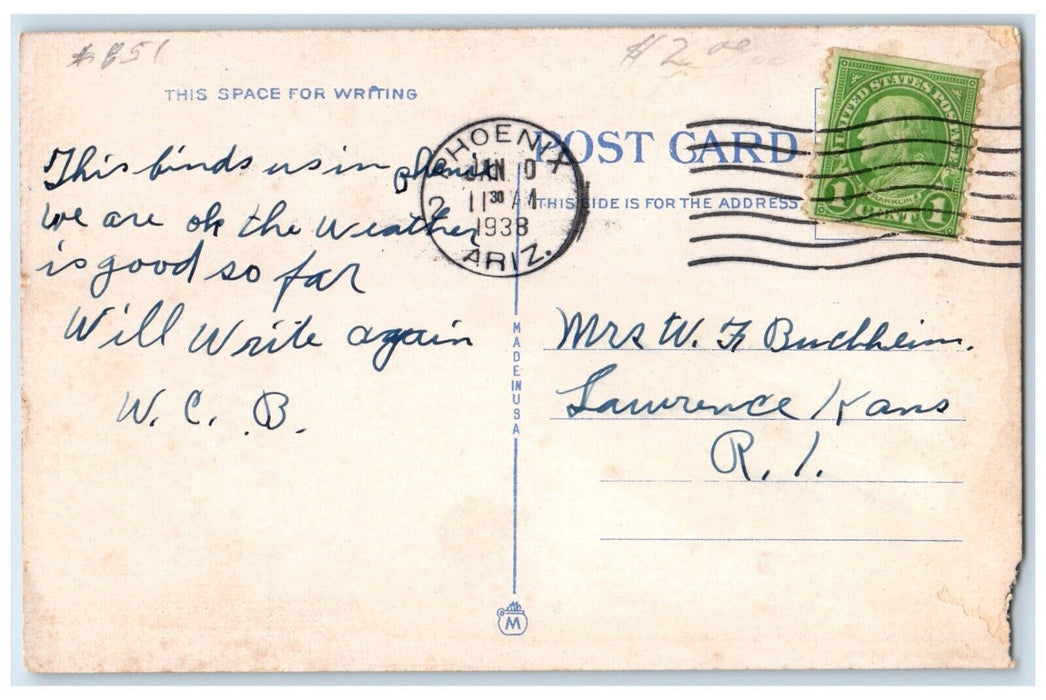 $851
#2 00
THIS SPACE FOR WRITING
This finds us in Phenix
we are ok the Weather
is good so far
Will Write again
W. C. B.
PHOENIX
JAN
11 30 AM
1938
ARIZ.
2
POST CARD
THIS SIDE IS FOR THE ADDRESS
UNITED STATES POSTAGE
FRANKLIN
1 CENT 1
MADE IN USA
Mrs W. F. Buchheim.
Lawrence Kans
R. 1.
M